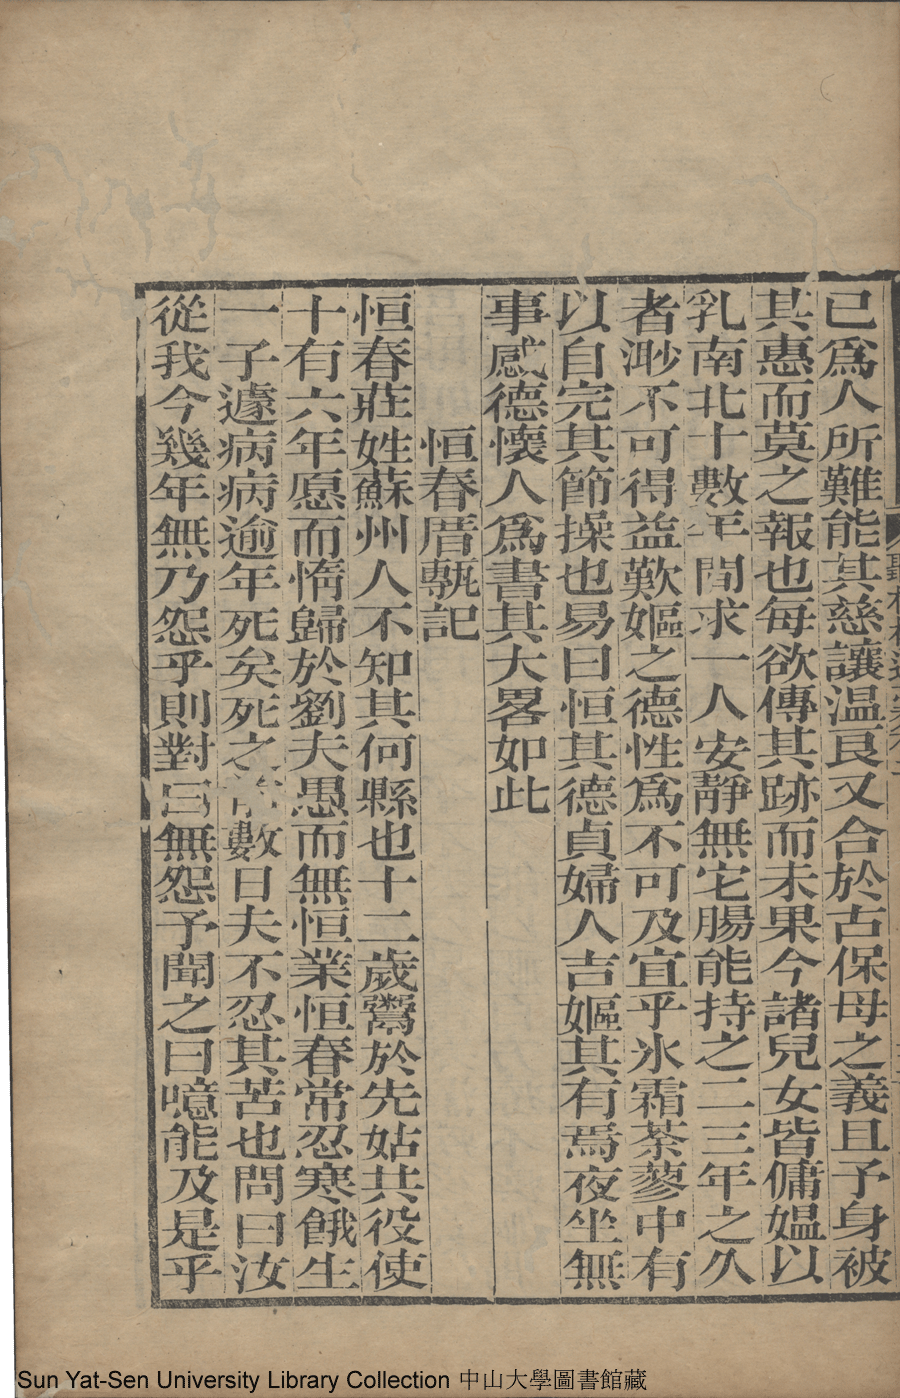 已爲人所難能其慈讓温良又合於古保母之義且予身被
其惠而莫之報也每欲傳其跡而未果今諸兒女皆傭媪以
乳南北十數年間求一人安靜無它腸能持之二三年之久
者渺不可得益歎嫗之德性爲不可及宜乎氷霜荼蓼中有
以自完其節操也易曰恒其德貞婦人吉嫗其有焉夜坐無
事感德懷人爲書其大畧如此
恒春厝甎記
恒春莊姓蘇州人不知其何縣也十二歲鬻於先姑共役使
十有六年愿而惰歸於劉夫愚而無恒業恒春常忍寒餓生
一子遽病病逾年死矣死之前數日夫不忍其苦也問曰汝
從我今幾年無乃怨乎則對曰無怨予聞之曰噫能及是乎
Sun Yat-Sen University Library Collection 中山大學圖書館藏